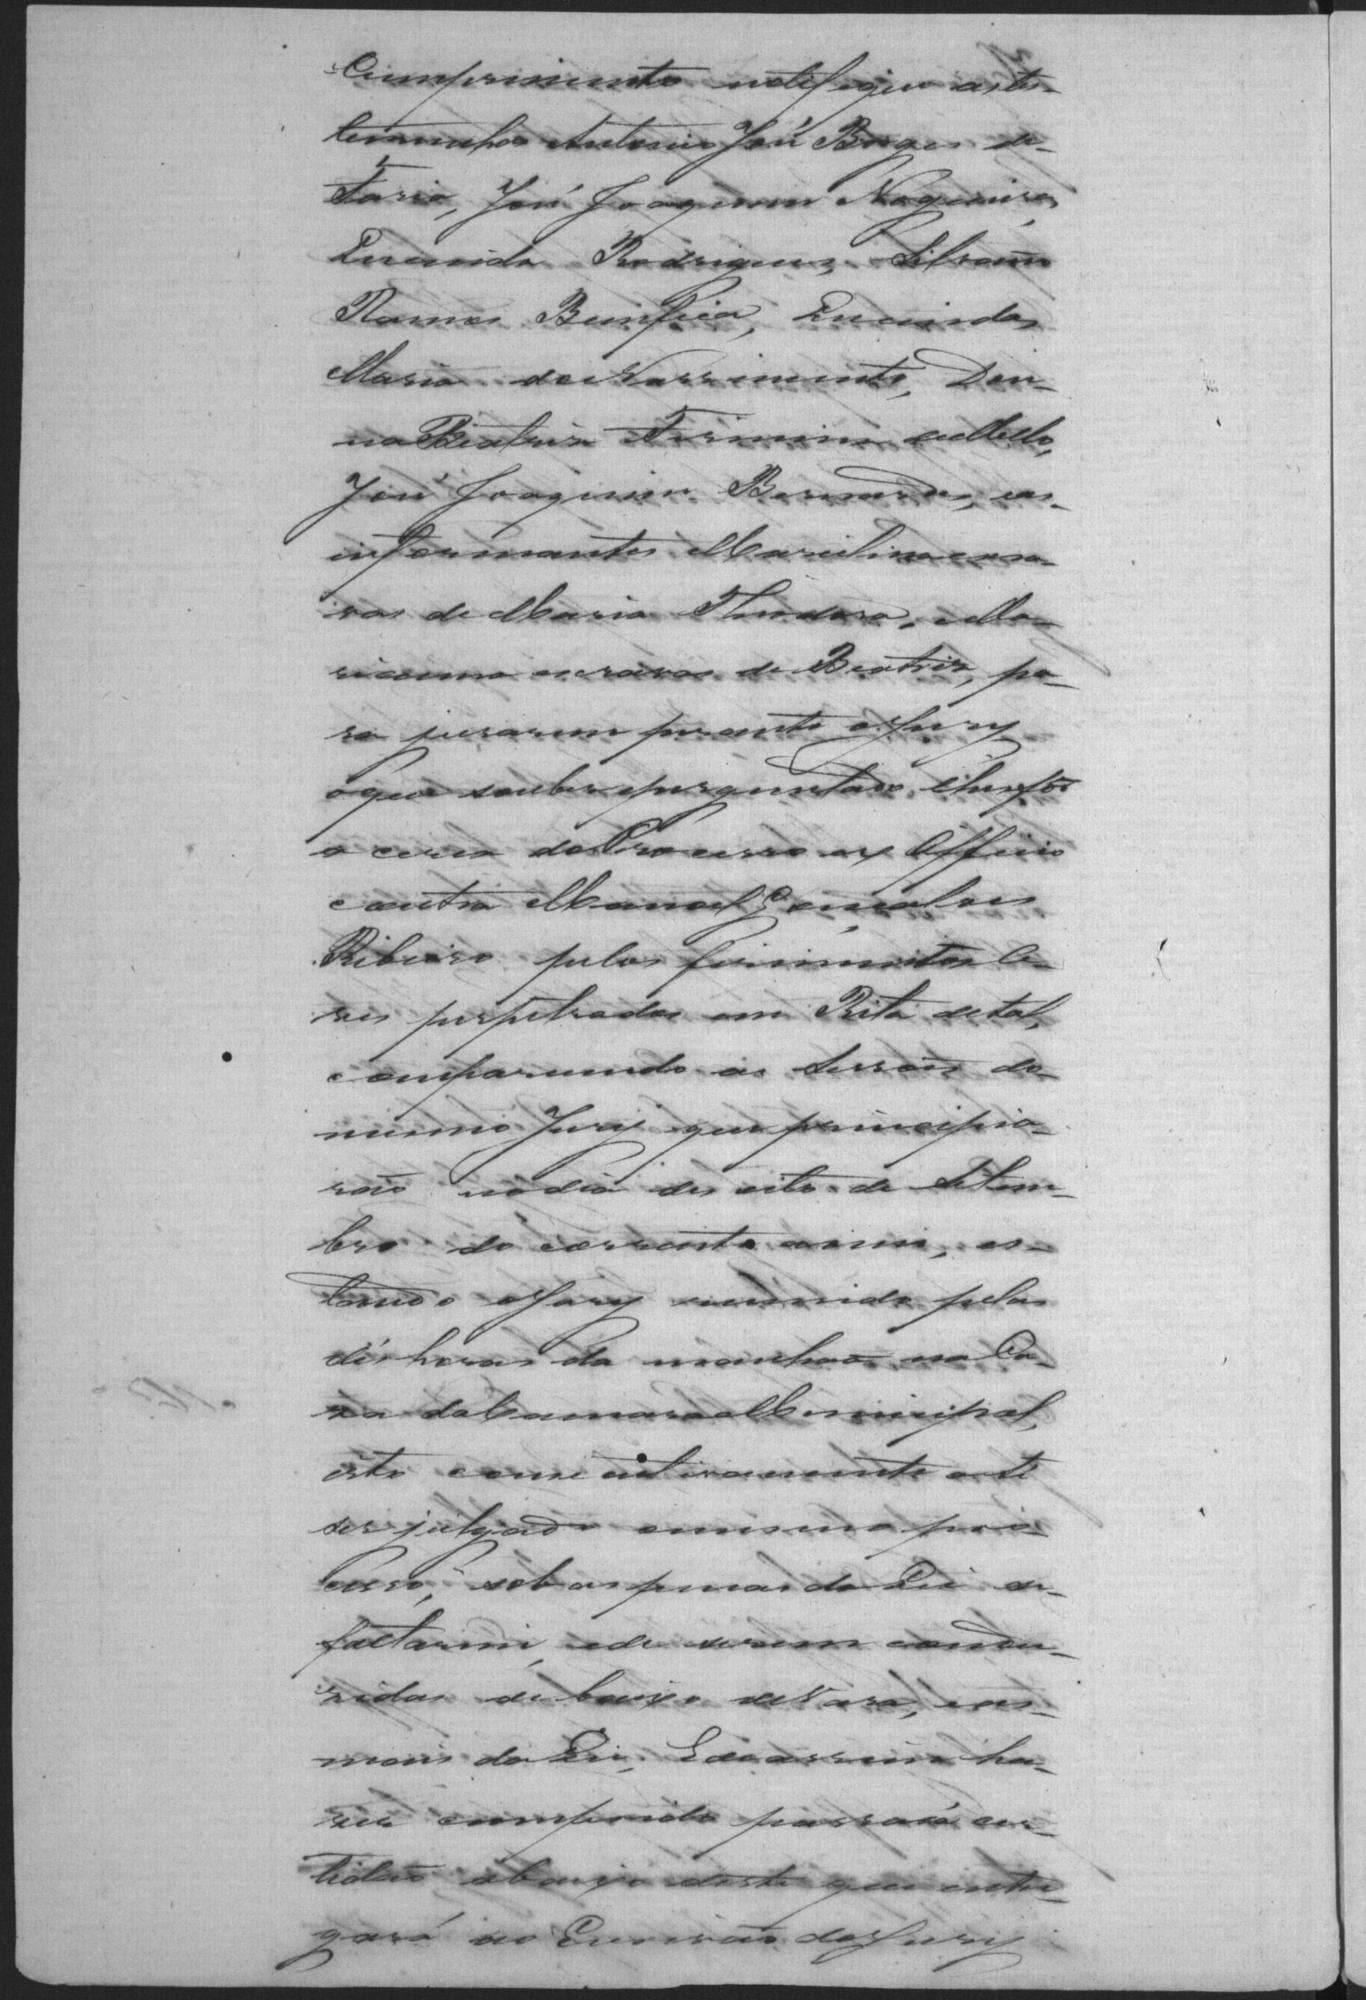 Cumprimento notifique as tes-
temunhas Antonio José Borges de
Faria, José Joaquim Nogueira,
Lucinda Rodrigues, Silverio
Ramos Bemfica, Lucinda
Maria do Nascimento, Don-
na Beatriz Firmina de Mello,
José Joaquim Bernardes, e as
informantes Marcilina escra-
vas de Maria Theodora, e Ma-
rianna escravas de Beatriz, pa-
ra jurarem perante o Jury
o que souber e perguntado lhes for
a cerca do Processo ex Officio
contra Manoel Gonçalves
Ribeiro pelos ferimentos le-
ves perpetrados em Rita de tal,
comparecendo as Sessões do
mesmo Jury que principia-
rão no dia des oito de Setem-
bro do corrente anno, es-
tando o Jury reunido pelas
dés horas da manhãa na Ca-
sa da Camara Municipal,
isto consecutivamente até
ser julgado o mesmo pro-
cesso, sob as penas da Lei se
faltarem, e de serem condu-
zidas de baixo de vara, e as
mais da Lei. E de assim ha-
ver cumprido passará cer-
tidão abaixo deste que entre-
gará ao Escrivão do Jury